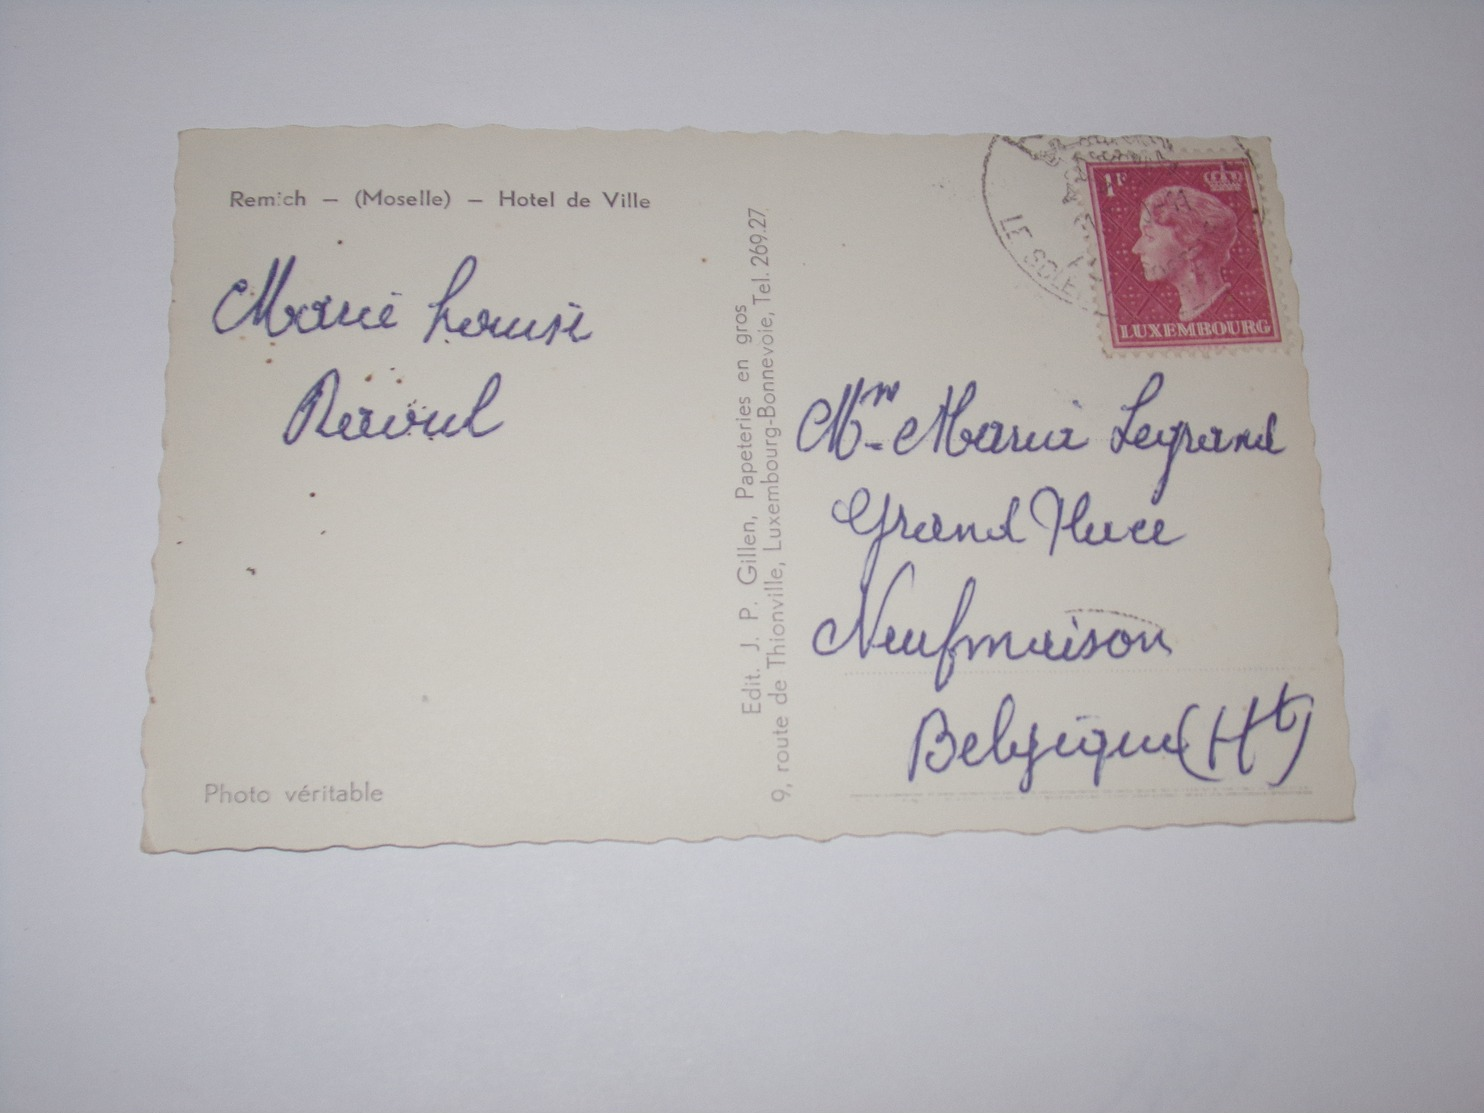 Remich – (Moselle) – Hotel de Ville
Marie Louise
Raoul
Photo véritable
Edit. J. P. Gillen, Papeteries en gros
9, route de Thionville, Luxembourg-Bonnevoie, Tel. 269.27
1F
LUXEMBOURG
Mm Maria Legrand
Grand Place
Neufmaison
Belgique (Ht)